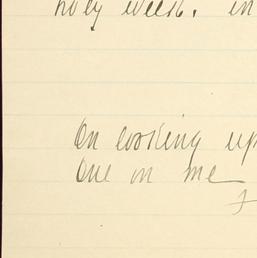 holy week. in
On looking up
One on me